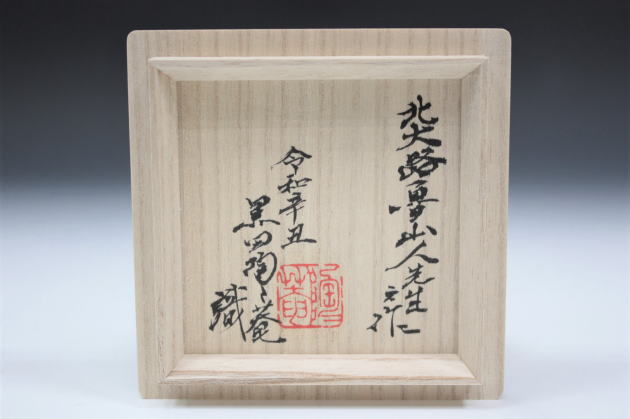 北大路魯山人先生
之作
令和辛丑
黒田陶々菴
識
陶々菴